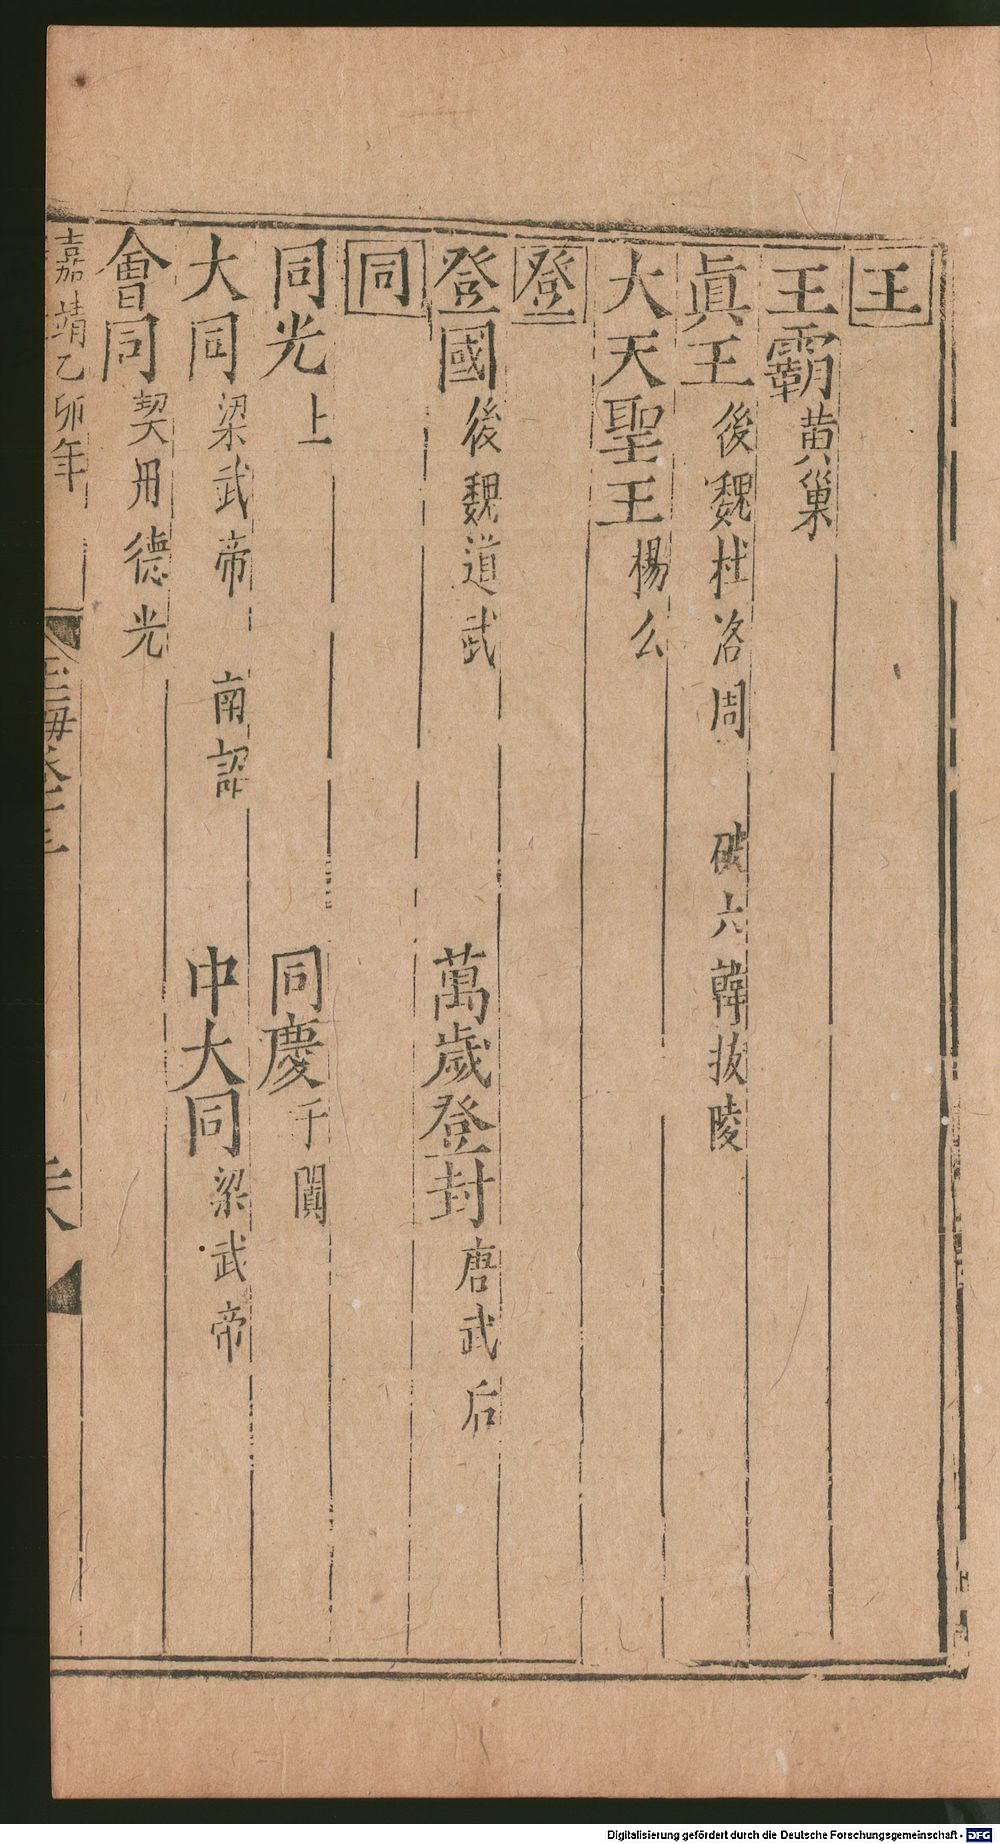 王
王霸 黄巢
眞王 後魏杜洛周 破六韓拔陵
大天聖王 楊么
登
登國 後魏道武 萬歲登封 唐武后
同
同光 上 同慶 于闐
大同 梁武帝 南詔 中大同 梁武帝
會同 契丹德光
嘉靖乙卯年
玉海卷十三
Digitalisierung gefördert durch die Deutsche Forschungsgemeinschaft - DFG